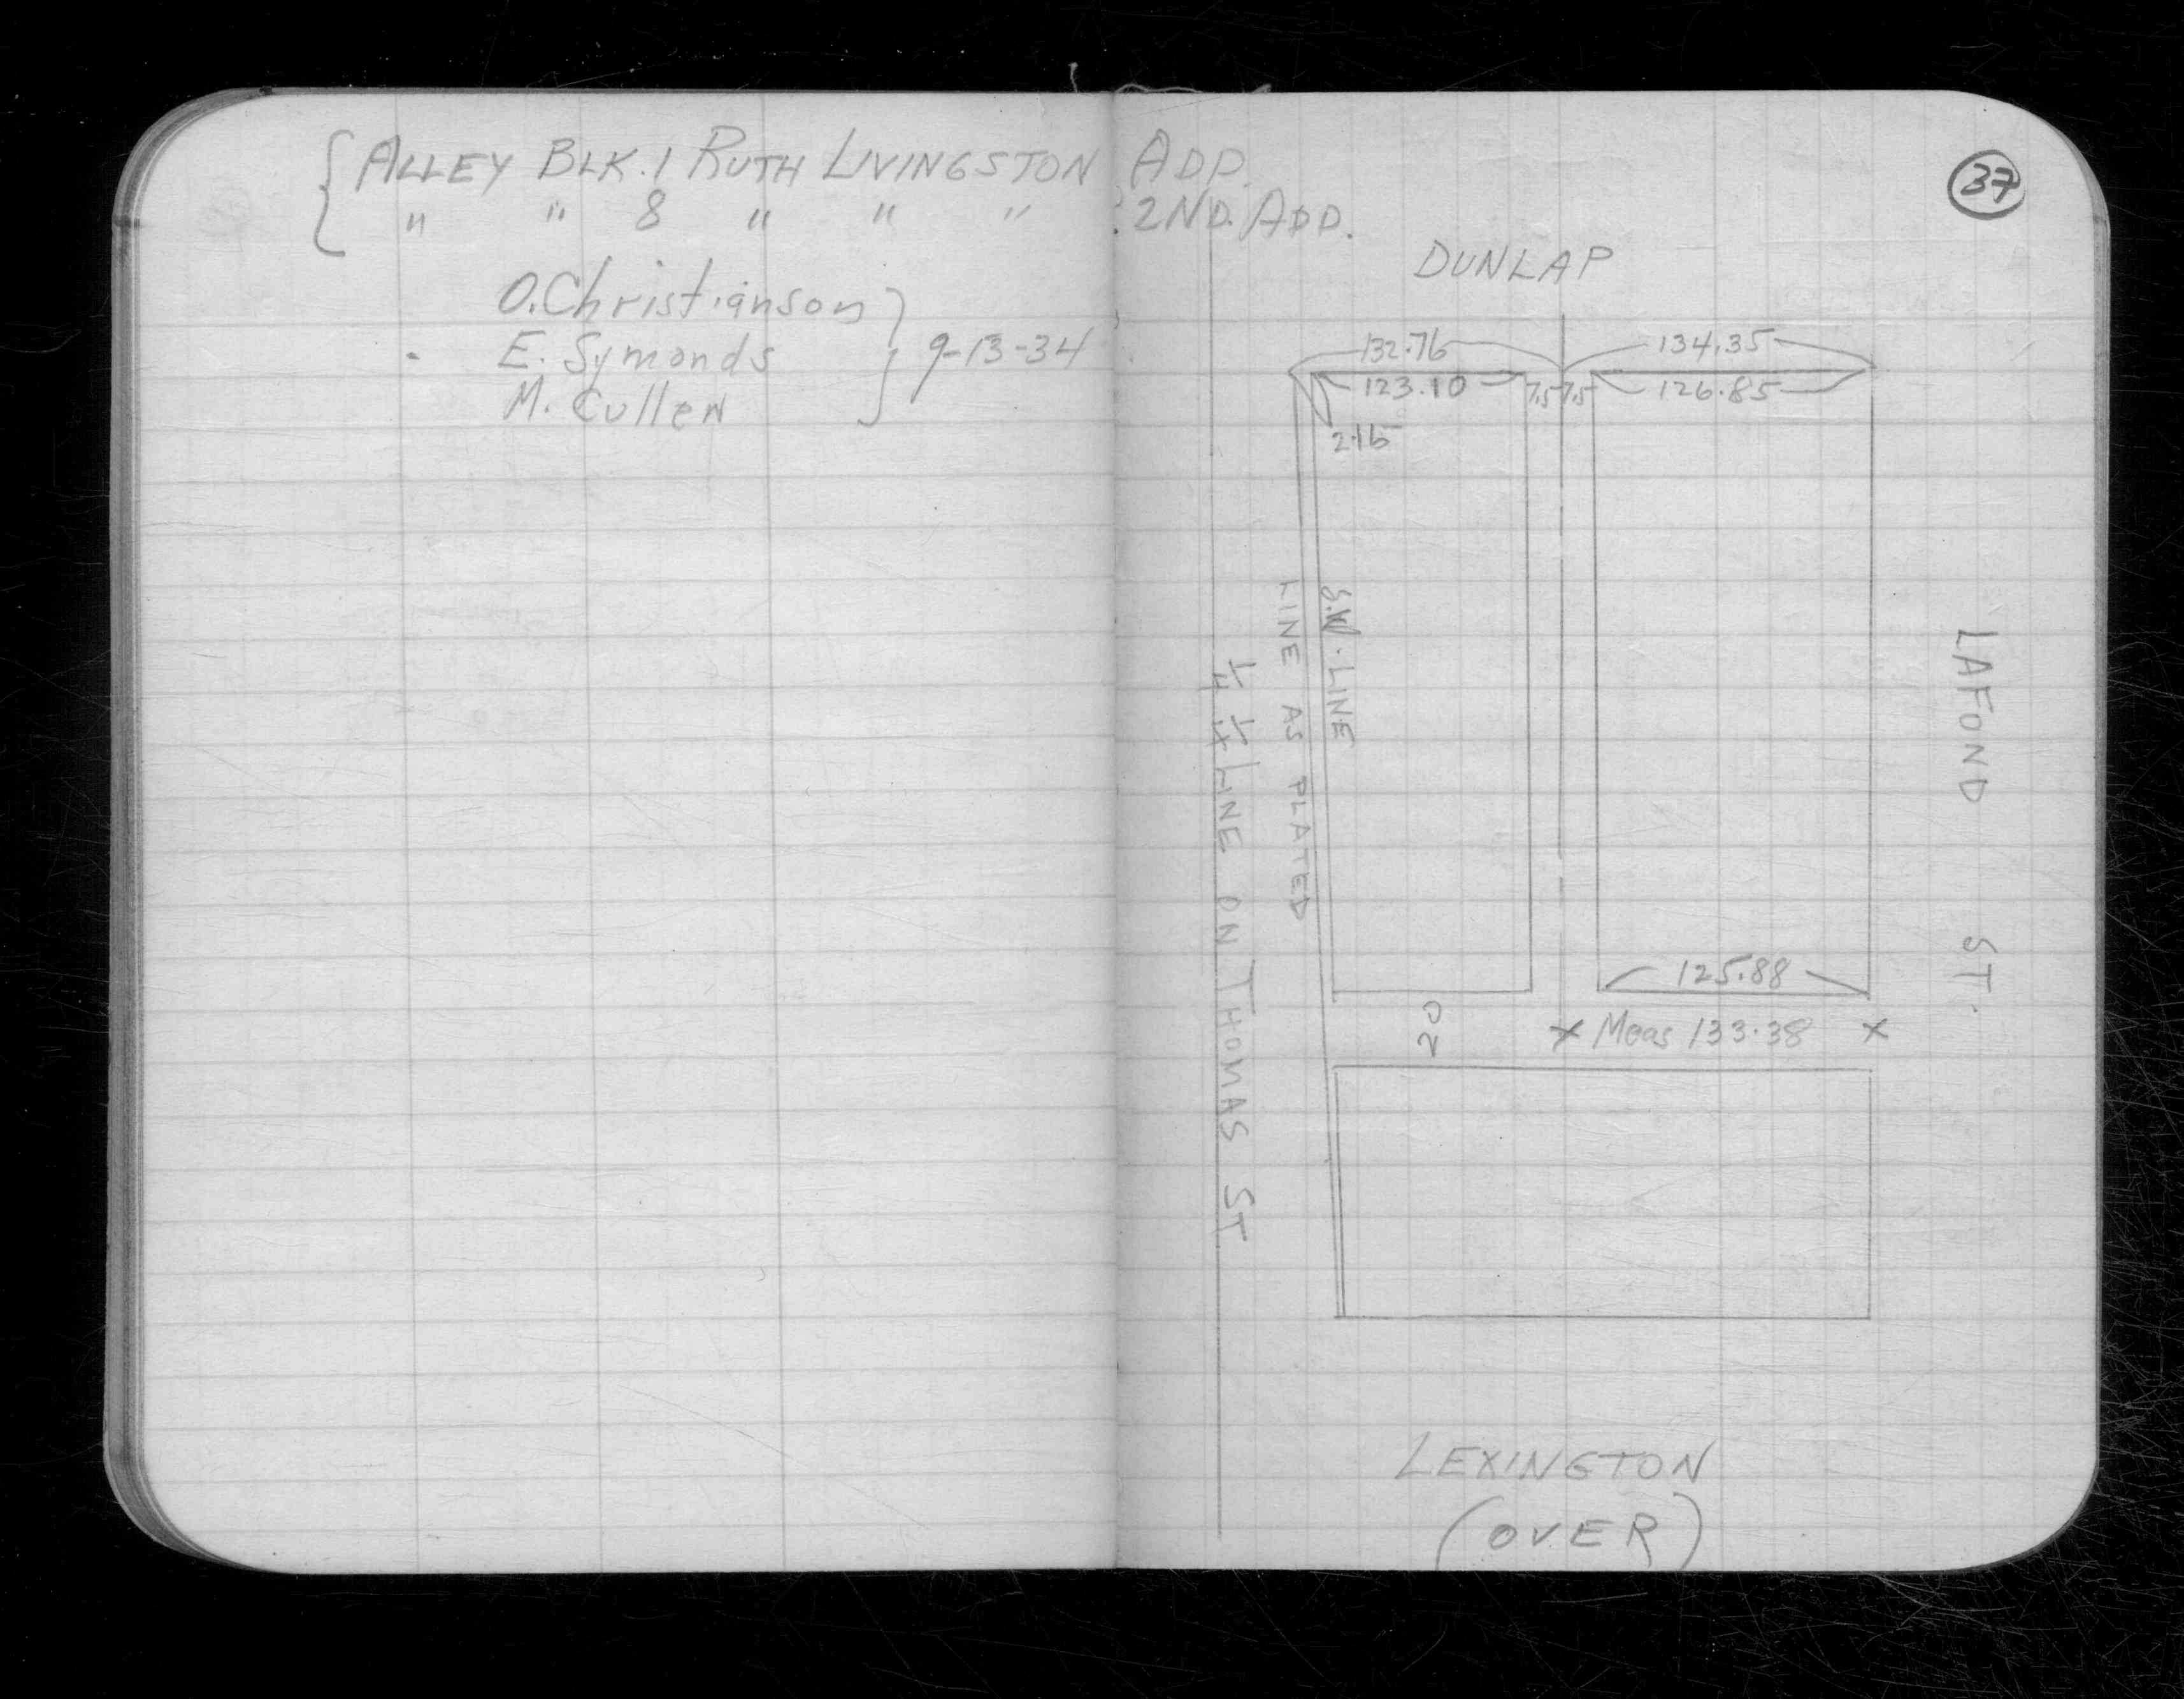 ALLEY BLK. 1 RUTH LIVINGSTON ADD.
" " 8 " " " 2ND. ADD.
O. Christianson
E. Symonds
M. Cullen
9-13-34
37
DUNLAP
132.76 134.35
123.10 7.5 7.5 126.85
2.16
S.W. LINE
LINE AS PLATED
1/4 1/4 LINE ON THOMAS ST
LAFOND ST.
125.88
20
x Meas 133.38 x
LEXINGTON
(OVER)